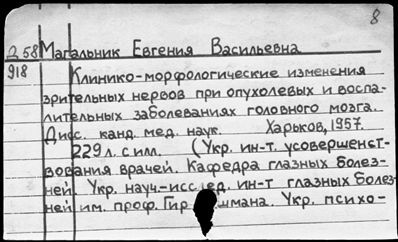 8
Д 58 Магальник Евгения Васильевна
918
Клинико-морфологические изменения
зрительных нервов при опухолевых и воспа-
лительных заболеваниях головного мозга.
Дисс. канд. мед. наук. Харьков, 1957.
229 л. с илл. (Укр. ин-т. усовершенст-
вования врачей. Кафедра глазных болез-
ней. Укр. науч.-исслед. ин-т глазных болез-
ней им. проф. Гиршмана. Укр. психо-